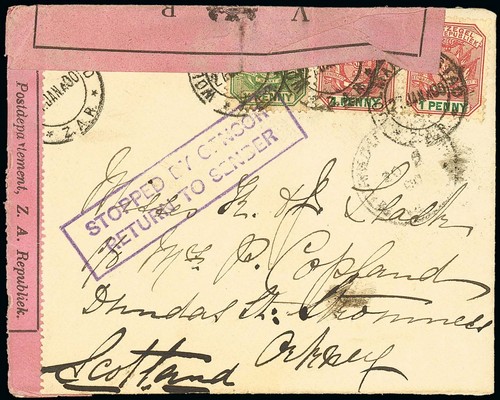 V R
Postdepartement, Z. A. Republiek.
JAN 00
Z.A.R.
PENNY
1 PENNY
1 PENNY
JAN 00
STOPPED BY CENSOR
RETURN TO SENDER
K. Slack
P. Copland
Dundas St. Stromness
Orkney
Scotland